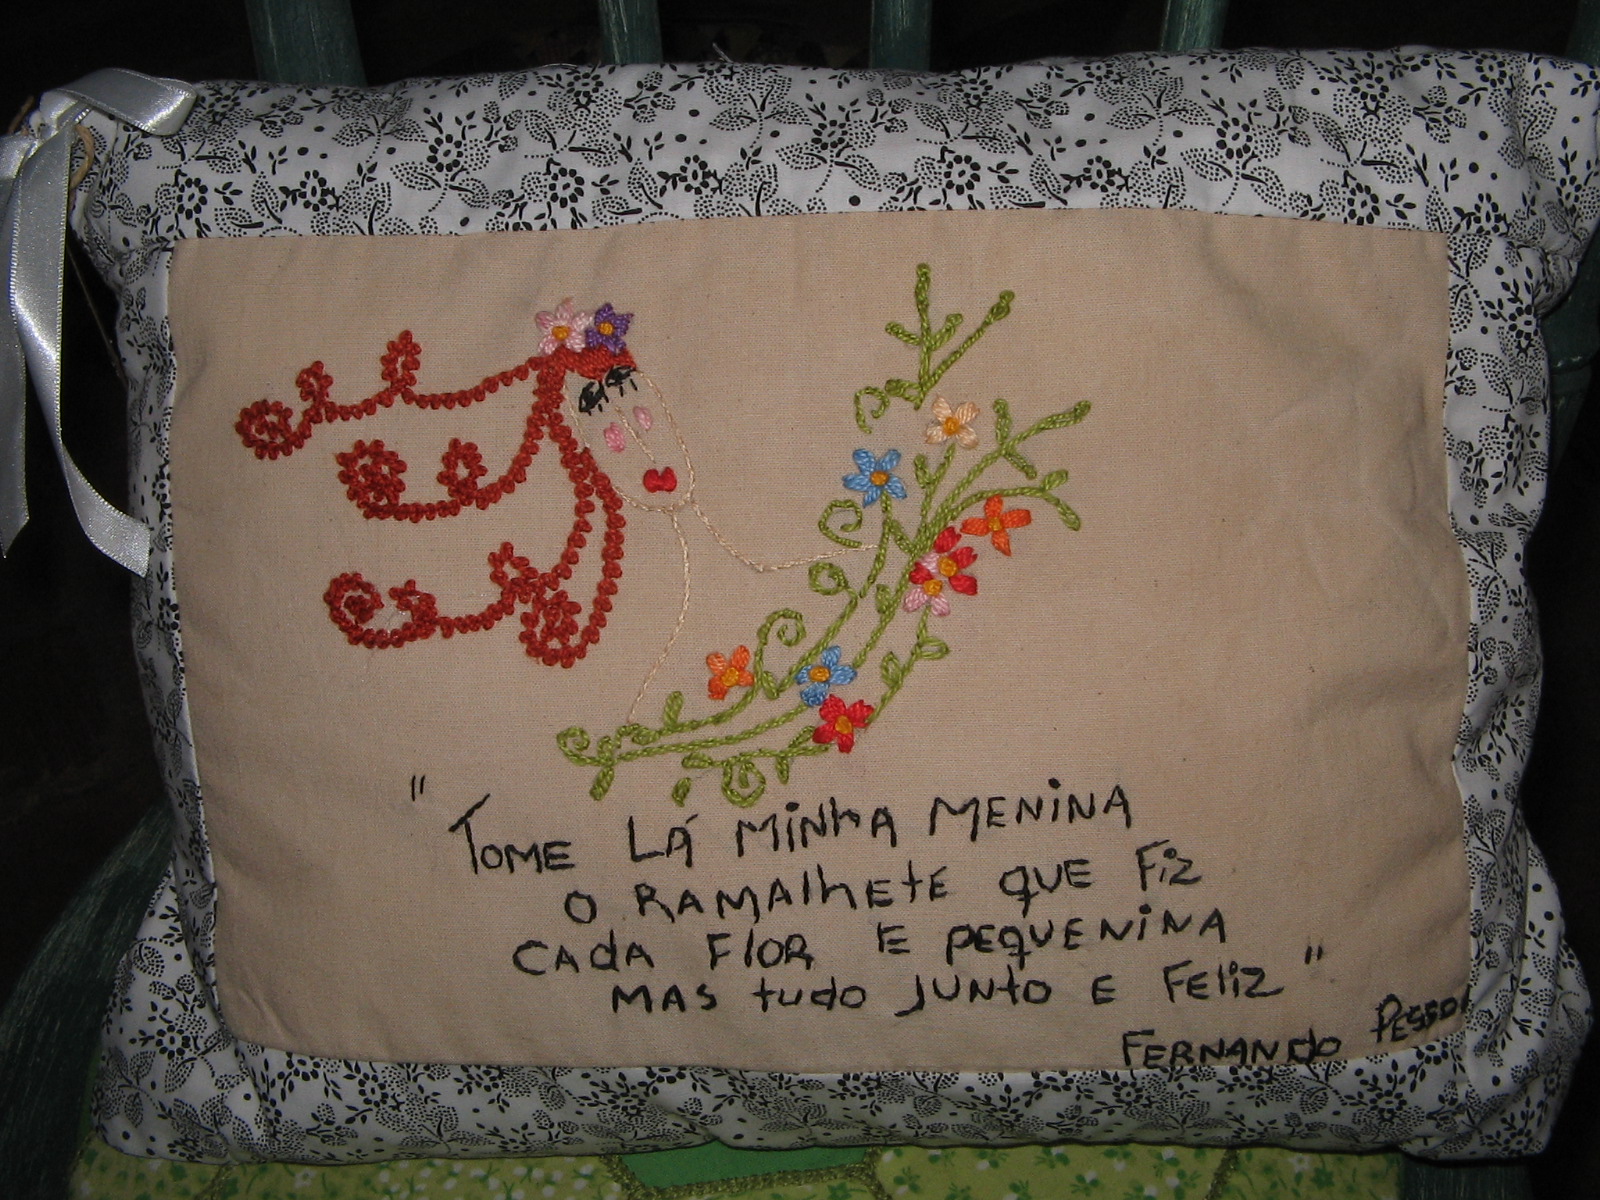 "TOME LÁ MINHA MENINA
O RAMALHETE QUE FIZ
CADA FLOR E PEQUENINA
MAS tudo JUNTO E FELIZ"
FERNANDO PESSOA